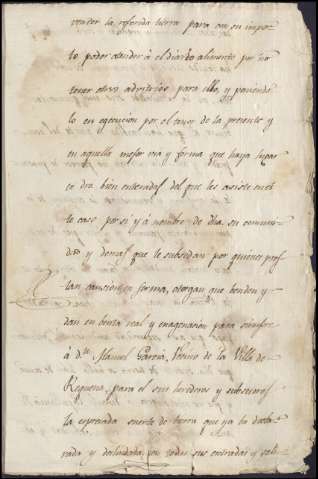 vender la referida tierra para con su impor-
to, poder atender à el diario alimento por no
tener otros advitrios para ello, y poniendo
lo en egecucion por el tenor de la presente y
en aquella mejor via y forma que haya lugar
en dro. bien enteradas del que les asiste en es-
te caso por si y à nombre de dha. su comuni-
dad y demas que le subsedan por quienes pres-
tan caucion en forma, otorgan que benden y
dan en benta real y enagenacion para siempre
à dn. Manuel Garcia, Vecino de la Villa de
Requena, para el sus herederos y subcesores
la expresada suerte de tierra que ya ba decla-
rada y deslindada con todas sus entradas y sali-